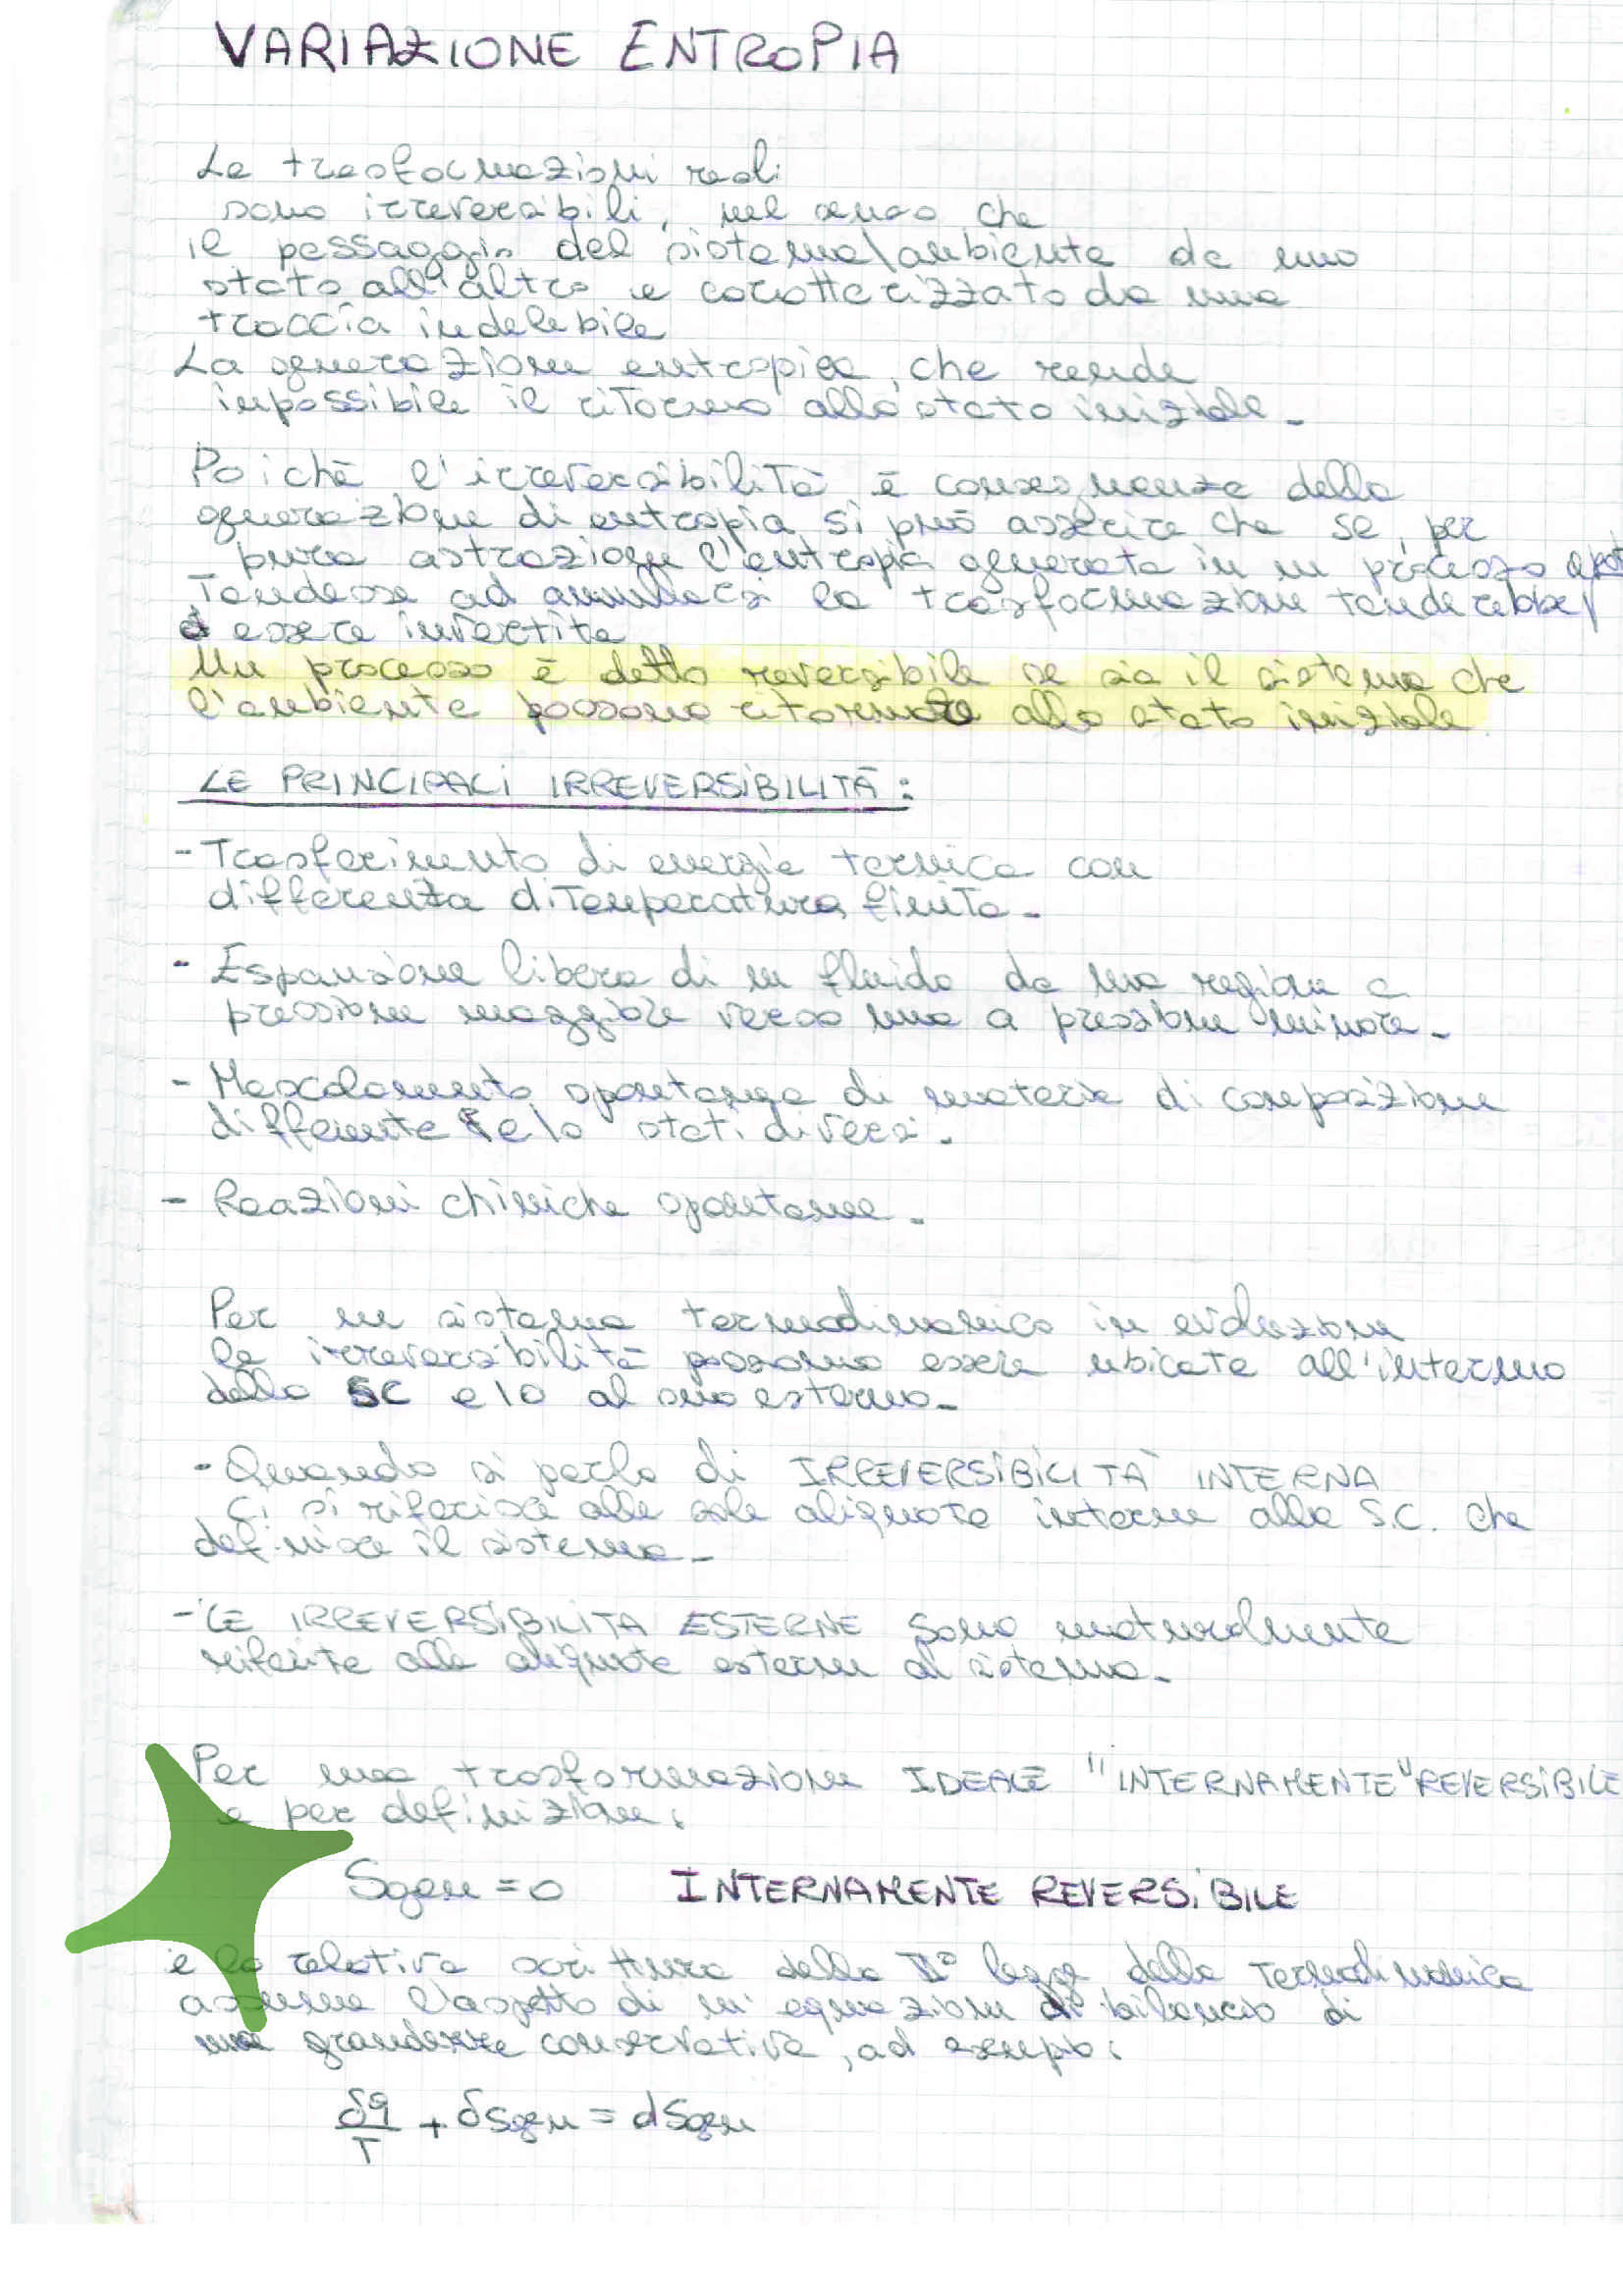 VARIAZIONE ENTROPIA
Le trasformazioni reali
sono irreversibili, nel senso che
il passaggio del sistema\ambiente da uno
stato all'altro e caratterizzato da una
traccia indelebile
La generazione entropica, che rende
impossibile il ritorno allo stato iniziale.
Poichè l'irreversibilità è conseguenza della
generazione di entropia si può asserire che se, per
pura astrazione l'entropia generata in un processo
Tendesse ad annullarsi la trasformazione tenderebbe
essere invertita
Un processo è detto reversibile se sia il sistema che
l'ambiente possono ritornare allo stato iniziale.
LE PRINCIPALI IRREVERSIBILITÀ:
- Trasferimento di energia termica con
differenza di Temperatura finita.
- Espansione libera di un fluido da una regione a
pressione maggiore verso una a pressione minore.
- Mescolamento spontaneo di materia di composizione
differente e/o stati diversi.
- Reazioni chimiche spontanee.
Per un sistema termodinamico in evoluzione
le irreversibilità possono essere ubicate all'interno
della SC e/o al suo esterno.
- Quando si parla di IRREVERSIBILITÀ INTERNA
ci si riferisce alle sole aliquote interne alla S.C. che
definisce il sistema.
- LE IRREVERSIBILITA ESTERNE sono naturalmente
riferite alle aliquote esterne al sistema.
Per una trasformazione IDEALE "INTERNAMENTE" REVERSIBILE
e per definizione:
Sgen = 0 INTERNAMENTE REVERSIBILE
e la relativa scrittura della IIº legge della Termodinamica
assume l'aspetto di un'equazione di bilancio di
una grandezza conservativa, ad esempio:
δq/T + δsgen = dSgen